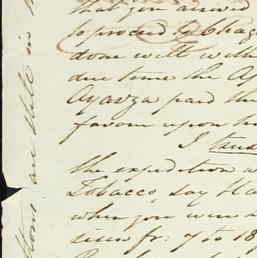 that you arrived
to proceed to Chag
done with with
due time the A
Ayarza paid the
favour upon h
I
the expedition w
Tobacco, say Ha
when you were
sises fr: 7 to 18
are state in